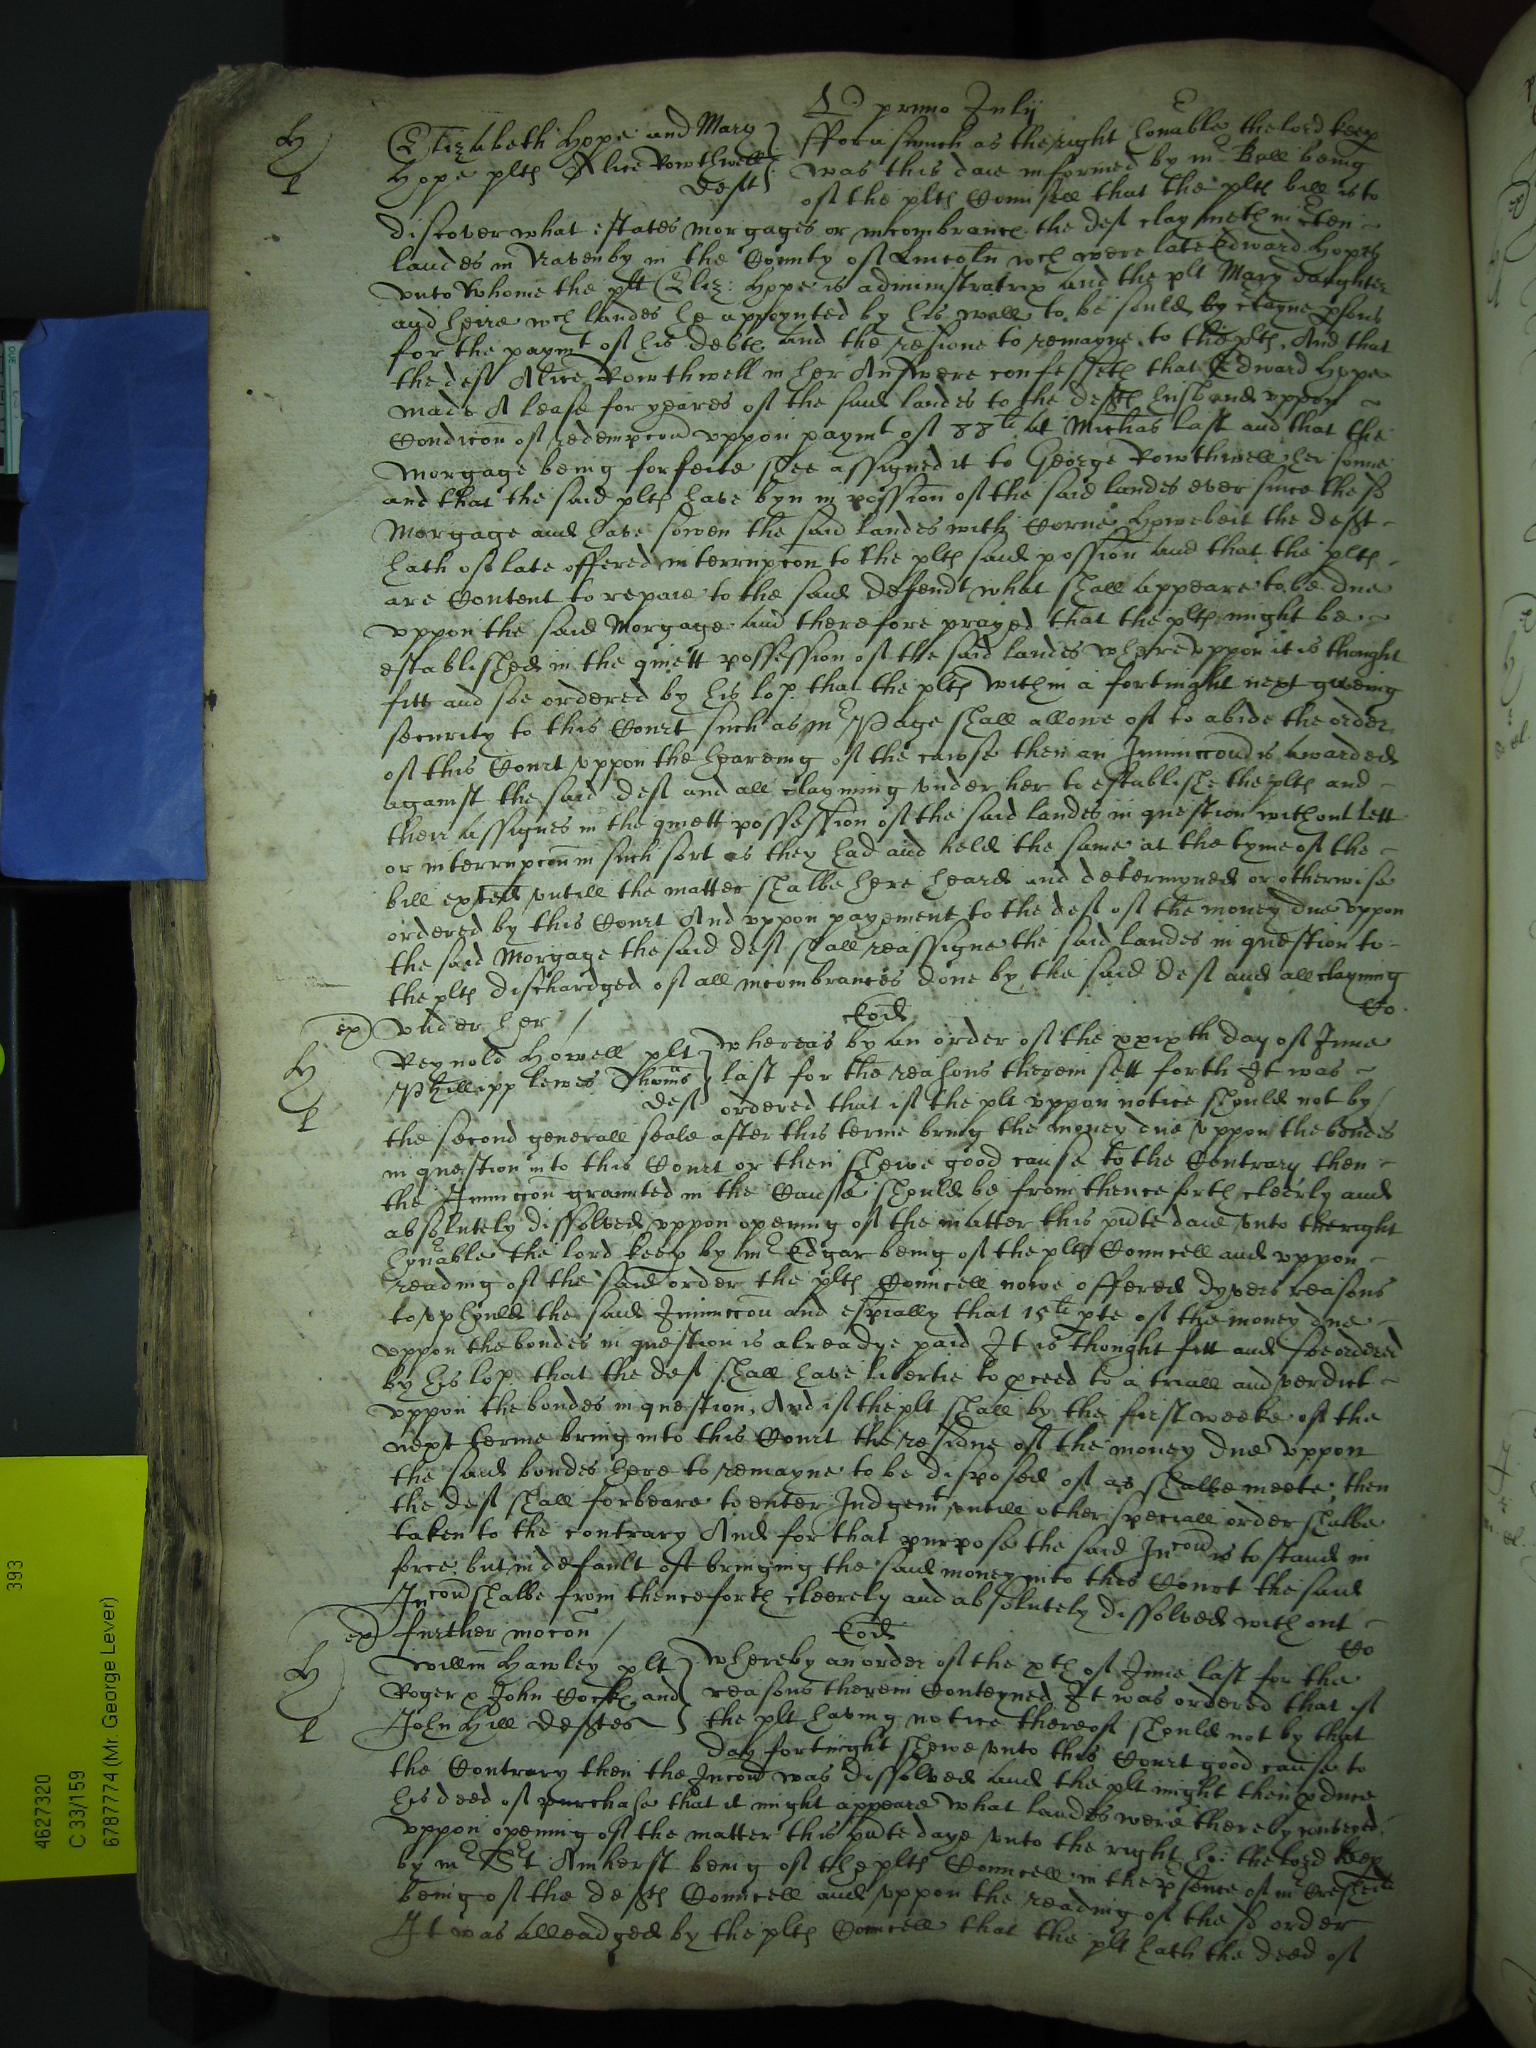 D primo Julij
Elizabeth Hope and Mary
Hope plts Alice Rowthwell
deft
fforasmuch as the right honable the lord keep
was this daie informed by mr Ball being
of the plts Counsell that the plts bill is to
discover what estates morgages or incombranc the deft claymeth in
landes in Navenby in the County of Lincoln wch were late Edward Hopes
vnto whome the plt Eliz: Hope is administratrix and the plt Mary daughter
and heire wch landes he appoynted by his will to be sould by ctayne psons
for the paymt of his debts and the residue to remayne to the plts. And that
the deft Alice Rowthwell in her Answere confesseth that Edward Hope
made A lease for yeares of the said landes to the defts husband vppon
Condicon of redempcon vppon paymt of 88li at Michas last and that the
Morgage being forfeite shee assigned it to George Rowthwell her sonne
and that the said plts have byn in possion of the said landes ever since the sd
Morgage and have sowen the said landes with Corne, Howbeit the deft
hath of late offered interrupcon to the plts said possion And that the plts
are Content to repaie to the said defendt what shall appeare to be due
vppon the said Morgage and therefore prayed that the plts might be
established in the quiett possession of the said landes wherevppon it is thought
fitt and soe ordered by his lop. that the plts within a fortnight next giveing
security to this Court such as mr Page shall allowe of to abide the order
of this Court vppon the heareing of the cawse then an Iniunccon is awarded
against the said deft and all clayming vnder her to establish the plts and
their Assignes in the quiett possession of the said landes in question without lett
or interrupcon in such sort as they had and held the same at the tyme of the
bill exted vntill the matter shalbe here heard and determyned or otherwise
ordered by this Court And vppon payement to the deft of the money due vppon
the said Morgage the said deft shall reassigne the said landes in question to
the plts dischardged of all incombrances done by the said deft and all clayming
ex vnder her / Eod Co
Reynold Howell plt
Phillipp Lewes Thoms
deft
whereas by an order of the xxixth day of June
last for the reasons therein sett forth It was
ordered that if the plt vppon notice should not by
the second generall seale after this terme bring the money due vppon the bondes
in question into this Court or then shewe good cause to the Contrary then
the Iniunccon graunted in the Cause should be from thenceforth cleerly and
absolutely dissolved vppon opening of the matter this pnte daie vnto the right
honable the lord keep by mr Edgar being of the plts Councell and vppon
reading of the said order the plts Councell nowe offered dyvers reasons
to vphould the said Iniunccon and espially that 15li pte of the money due
vppon the bondes in question is alreadye paid It is thought fitt and soe ordered
by his lop. that the deft shall have libertie to pceed to a triall and verdict
vppon the bondes in question, And if the plt shall by the first weeke of the
next terme bring into this Court the residue of the money due vppon
the said bondes here to remayne to be disposed of as shalbe meete, then
the deft shall forbeare to enter Judgemt vntill other speciall order shalbe
taken to the contrary And for that purpose the said Incon is to stand in
force, but in default of bringing the said money into this Court the said
Incon shalbe from thenceforth cleerely and absolutely dissolved without
ex further mocon / Eod Co
Willm Hawley plt
Roger x John Cocks and
John Hill deftes
whereby an order of the xth of June last for the
reasons therein Conteyned It was ordered that if
the plt having notice thereof should not by that
day fortnight shewe vnto this Court good cause to
the Contrary then the Incon was dissolved and the plt might then pduce
his deed of purchase that it might appeare what landes were thereby conveyed,
vppon opening of the matter this pnte daye vnto the right ho: the lord keep
by mr St Amherst being of the plts Councell in the psence of mr
being of the defts Councell and vppon the reading of the sd order
It was alleadged by the plts Councell that the plt hath the deed of
393
4627320
C 33/159
6787774 (Mr. George Lever)